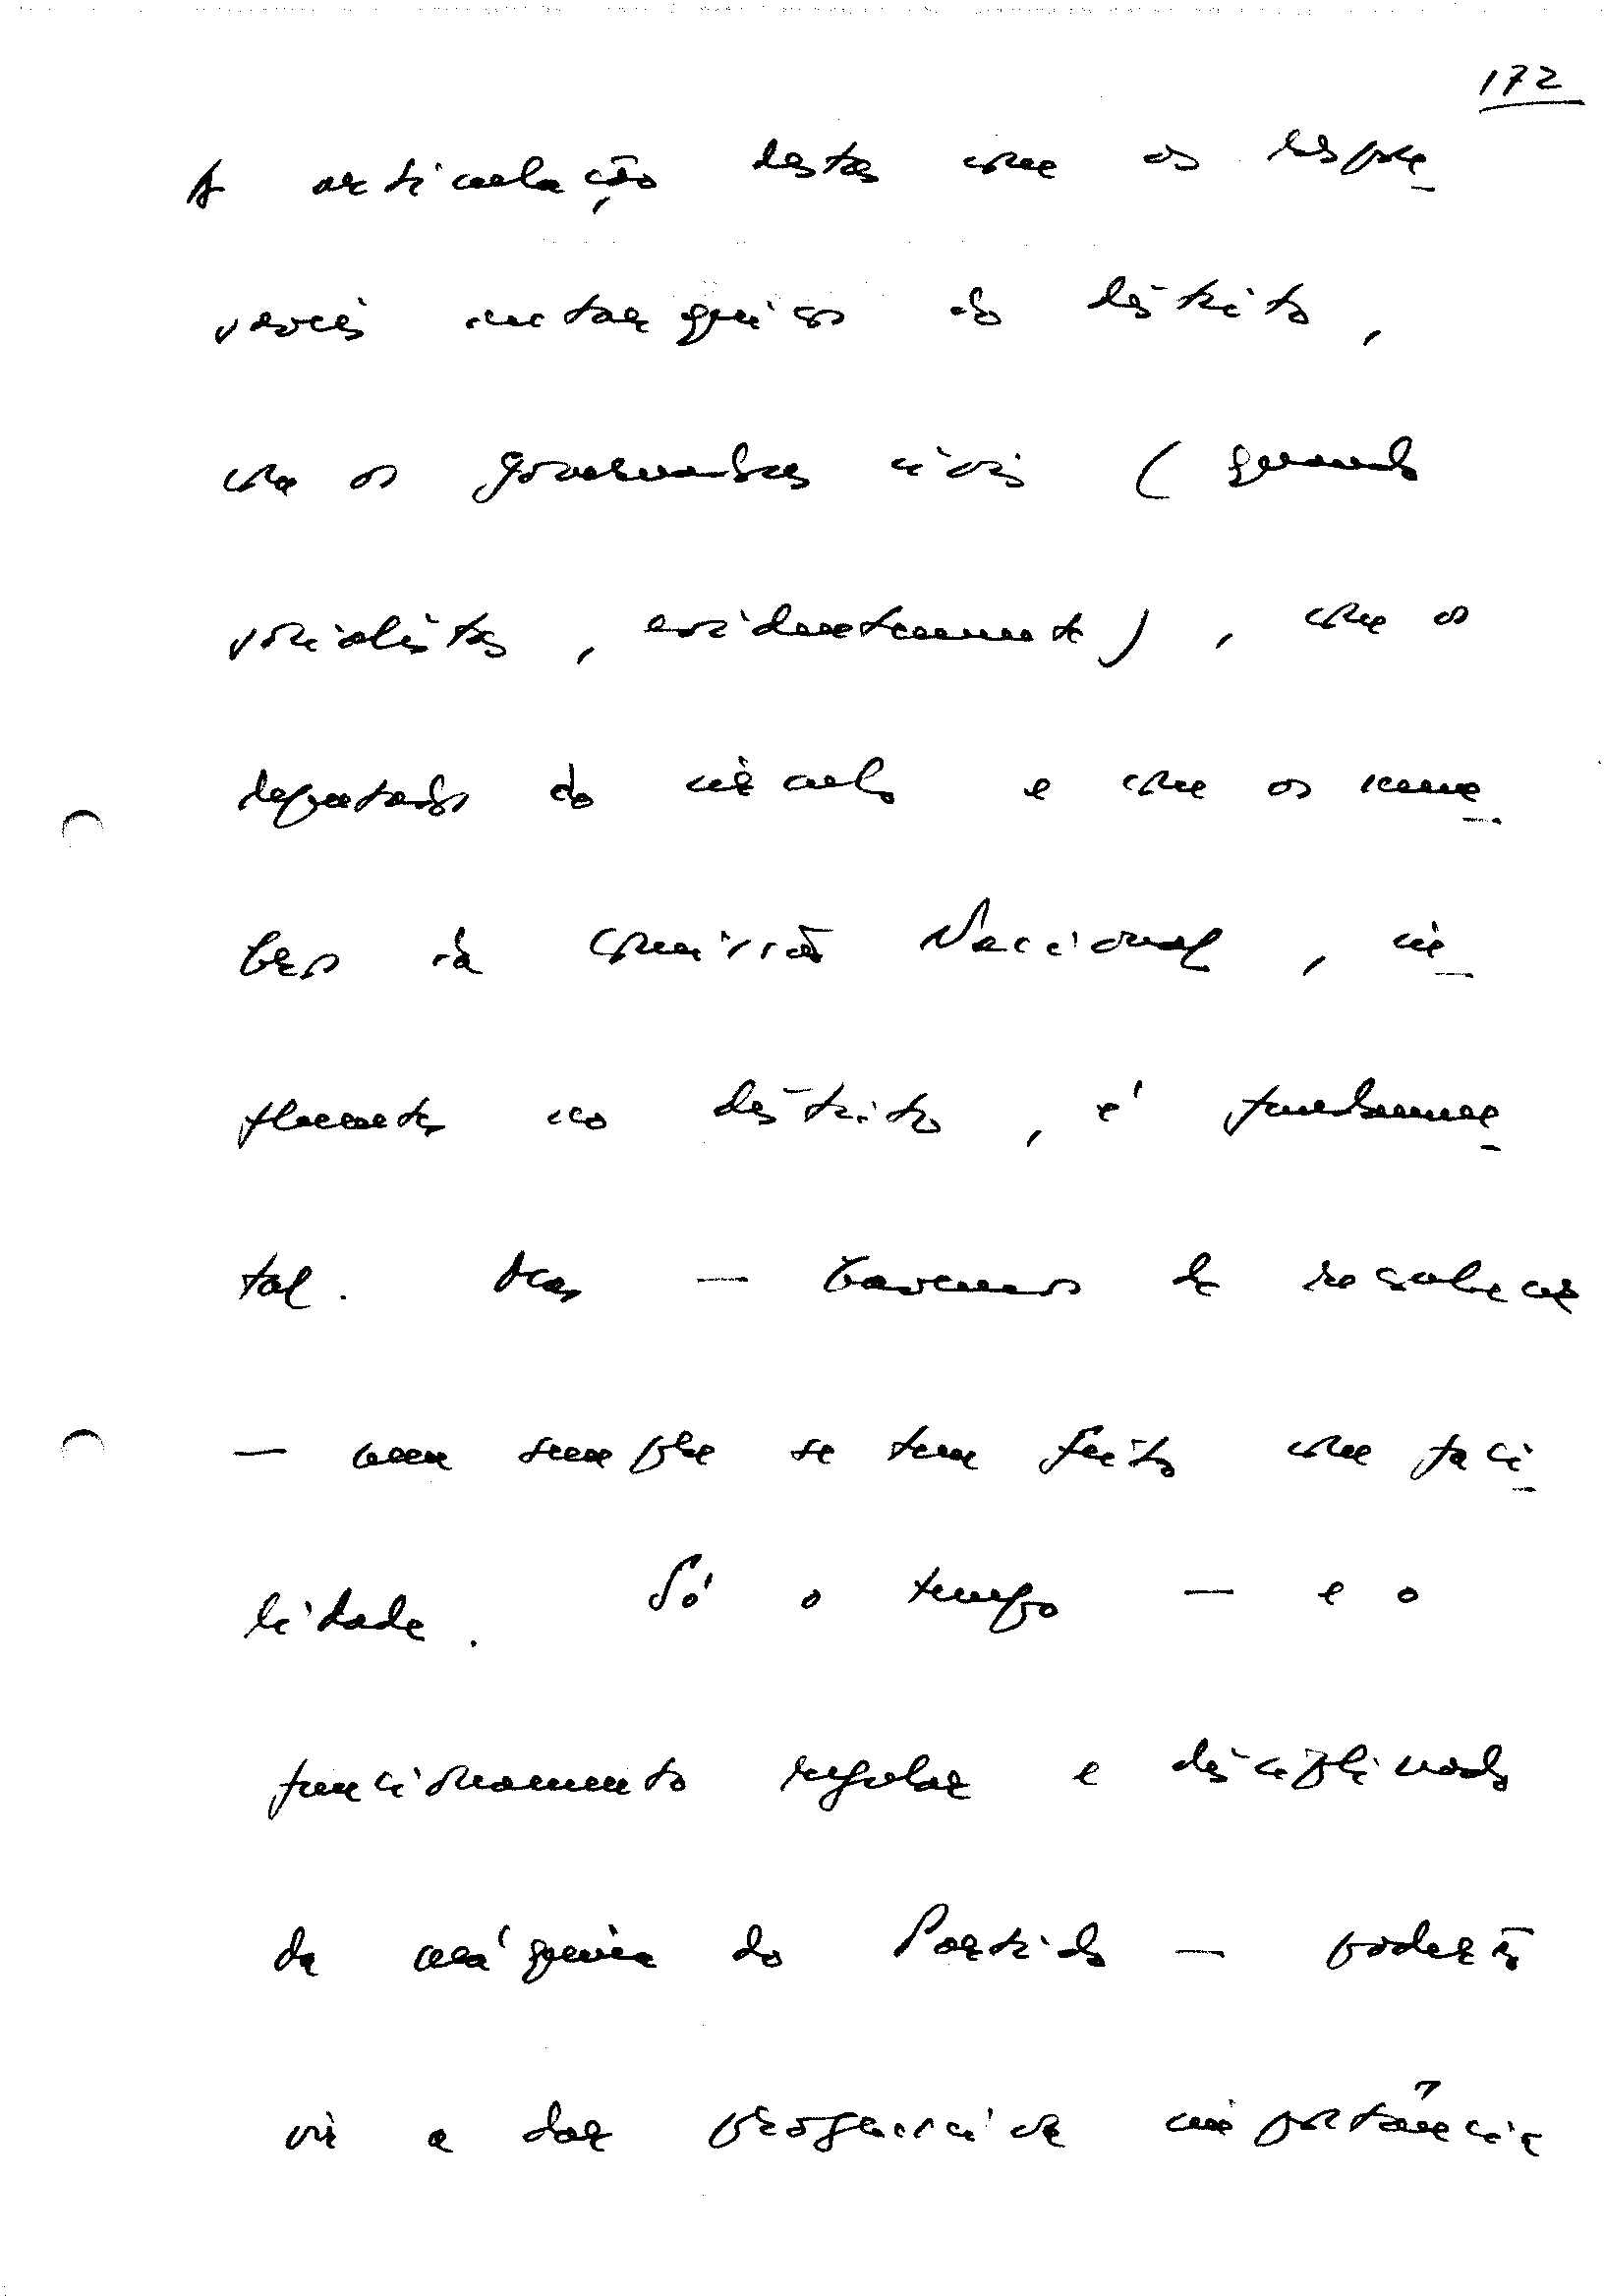 172
A articulação destas com os respon
sáveis autárquicos do distrito,
com os governadores civis (quando
socialistas, evidentemente), com os
deputados do círculo e com os mem
bros da Comissão Nacional, in
fluentes no distrito, é fundamen
tal. Mas — havemos de reconhecer
— nem sempre se tem feito com faci
lidade. Só o tempo — e o
funcionamento regular e disciplinado
da máquina do Partido — poderá
vir a dar progressiva importância